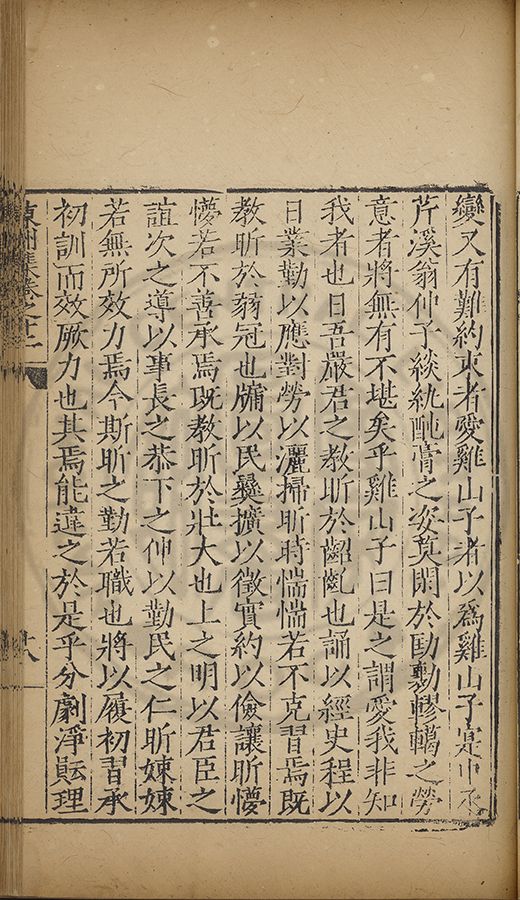 變又有難約束者愛雞山子者以為雞山子寔中丞
芹溪翁仲子緂紈酏膏之姿莫閑於勩勷轇轕之勞
意者將無有不堪矣乎雞山子曰是之謂愛我非知
我者也曰吾嚴君之教昕於齠齔也誦以經史程以
日業勤以應對勞以灑掃昕時惴惴若不克習焉既
教昕於弱冠也牖以民彝擴以徵實約以儉讓昕懮
懮若不善承焉既教昕於壯大也上之明以君臣之
誼次之導以事長之恭下之伸以勤民之仁昕娕娕
若無所效力焉今斯昕之勤若職也將以履初習承
初訓而效厥力也其焉能違之於是乎分劇淨賑理
集卷之十二
十八